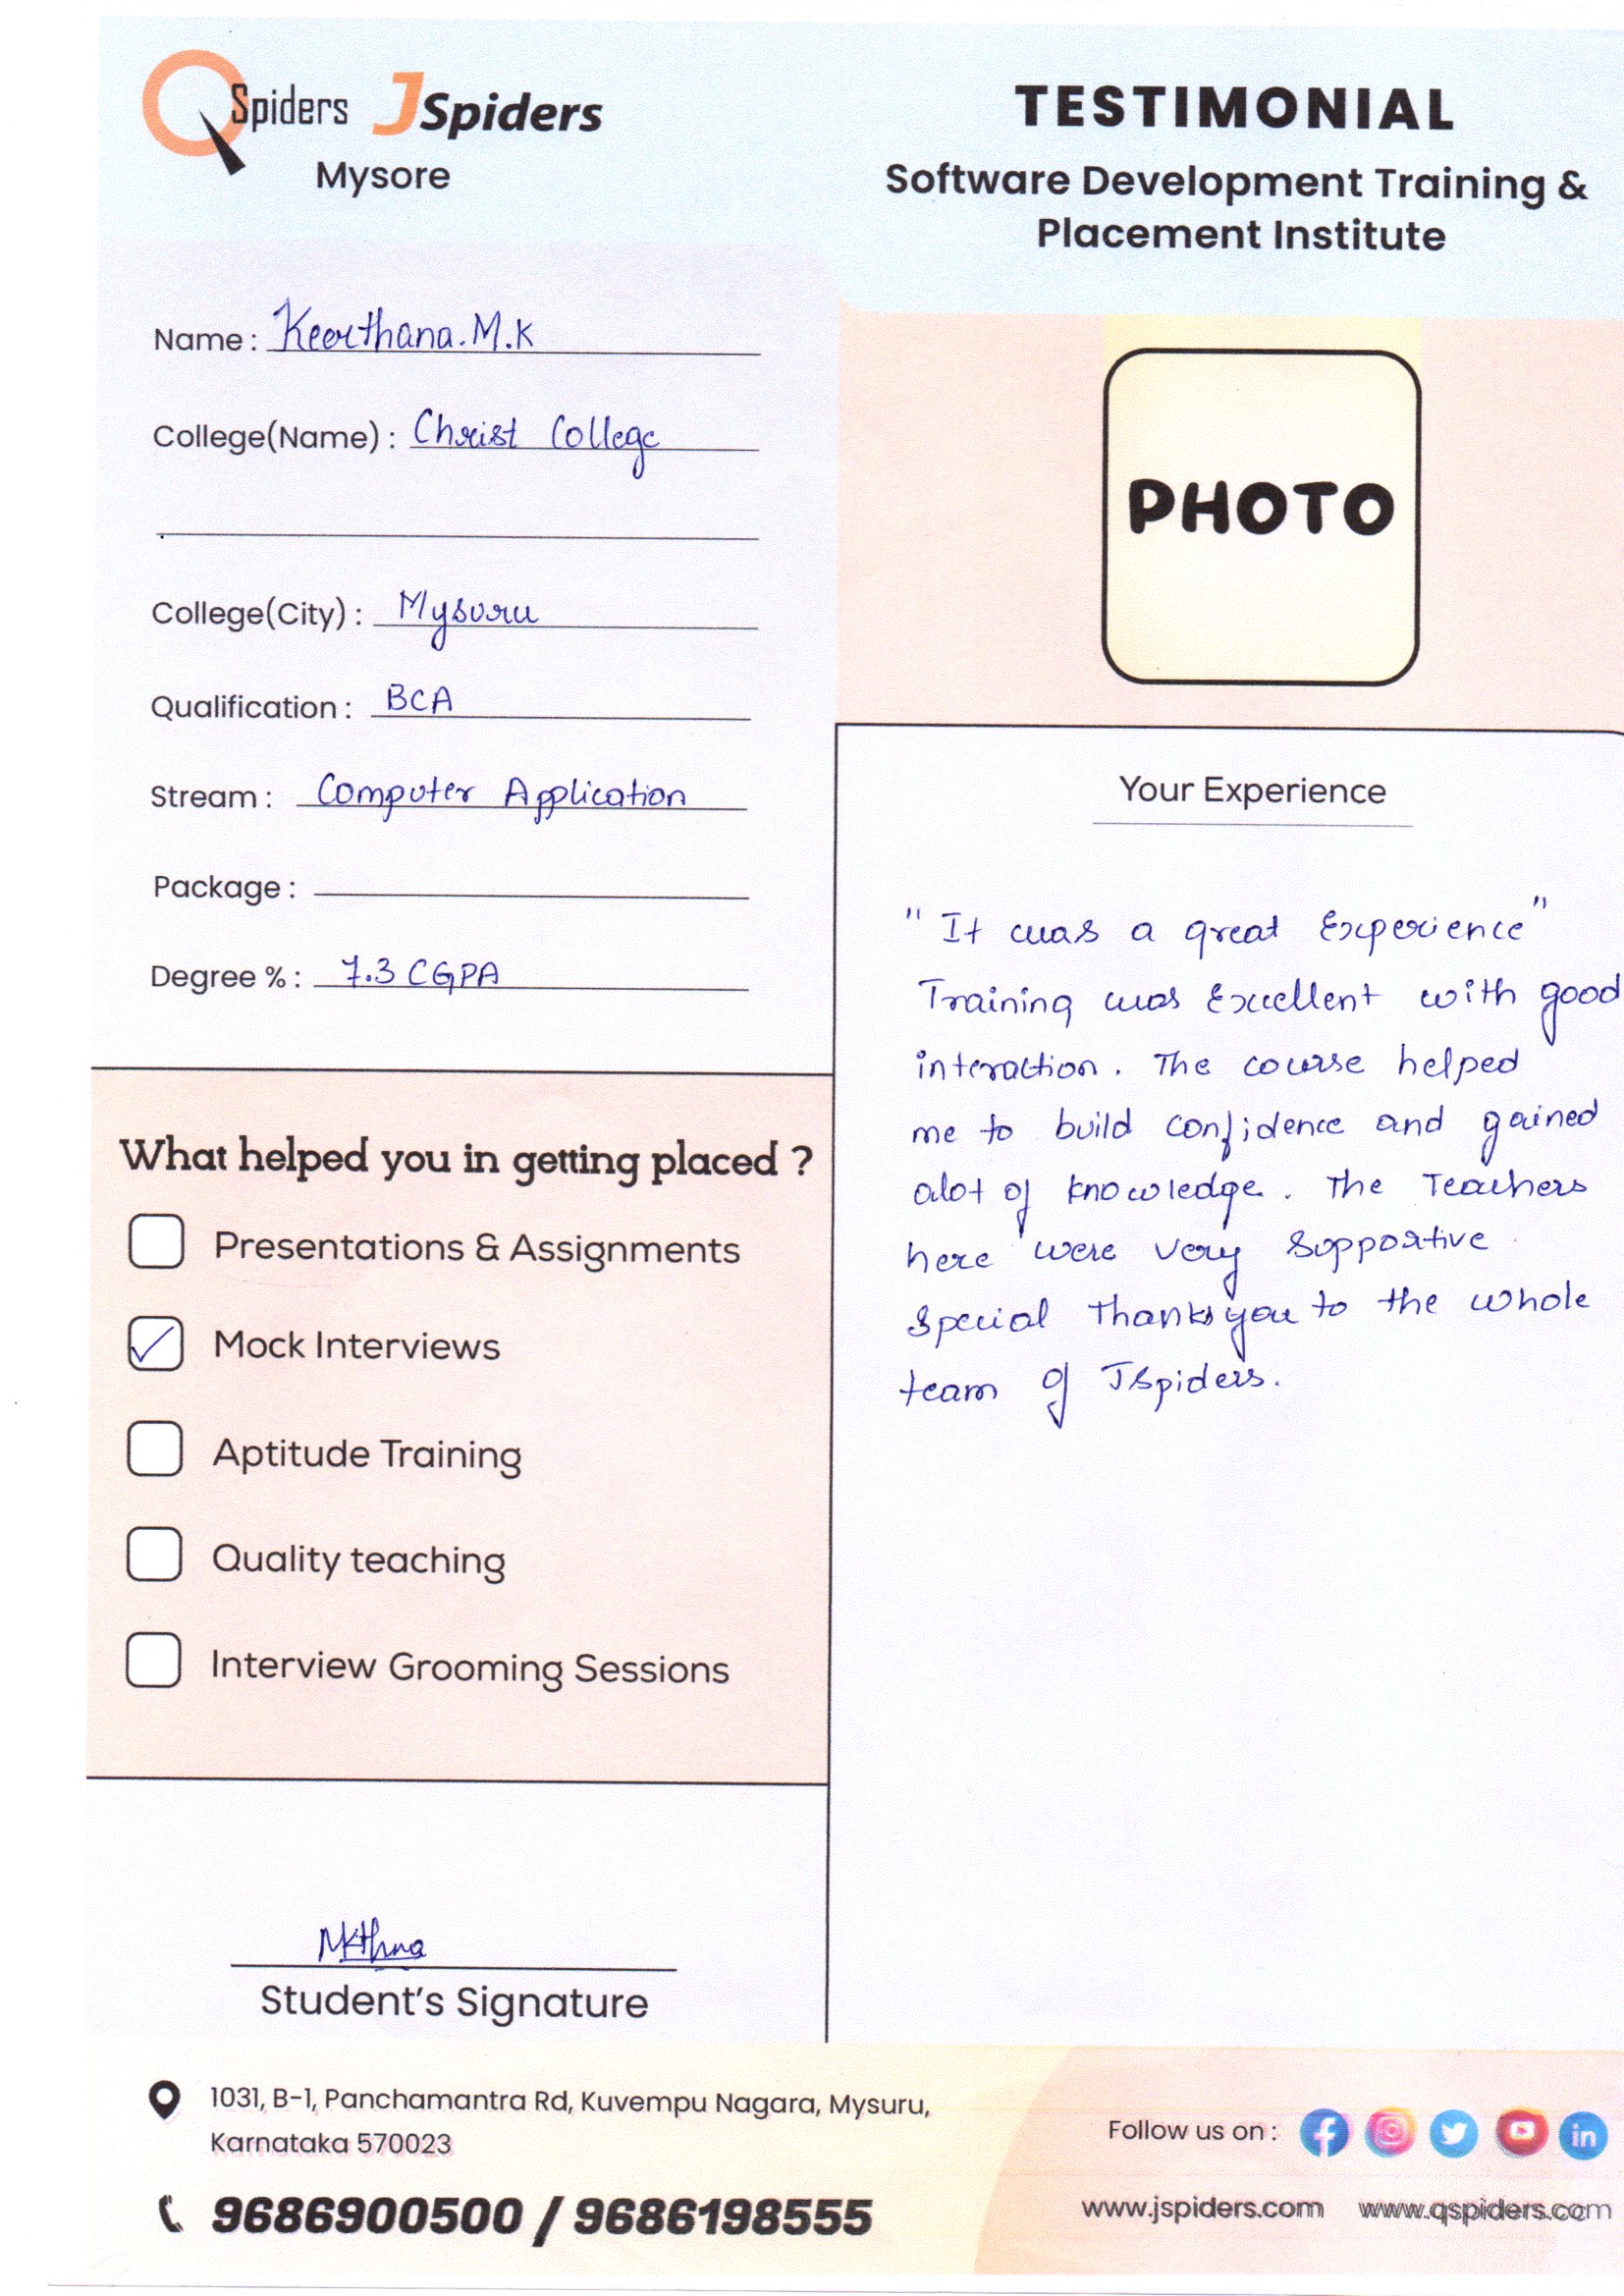 QSpiders JSpiders
Mysore
TESTIMONIAL
Software Development Training &
Placement Institute
Name : Keerthana.M.K
College(Name) : Christ College
College(City) : Mysuru
Qualification : BCA
Stream : Computer Application
Package :
Degree % : 7.3 CGPA
PHOTO
What helped you in getting placed ?
Presentations & Assignments
✓ Mock Interviews
Aptitude Training
Quality teaching
Interview Grooming Sessions
Student's Signature
Your Experience
"It was a great Experience"
Training was Excellent with good
interaction. The course helped
me to build confidence and gained
alot of knowledge. The Teachers
here were very Supportive
Special Thanks you to the whole
team of JSpiders.
1031, B-1, Panchamantra Rd, Kuvempu Nagara, Mysuru,
Karnataka 570023
9686900500 / 9686198555
Follow us on :
www.jspiders.com www.qspiders.com